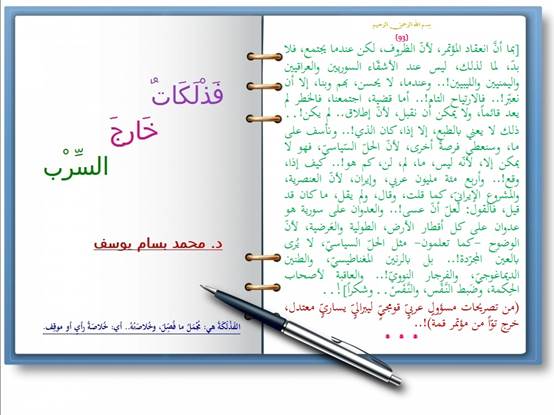 بسم الله الرحمن الرحيم
(93)
[بما أنَّ انعقاد المؤتمر، لأنّ الظروف، لكن عندما يجتمع، فلا
بدّ، لما لذلك، ليس عند الأشقّاء السوريين والعراقيين
واليمنيين والليبيين!.. وعندما، لا يحسن، بهم وبنا، إلا أن
نعبّر!.. فالارتياح التام!.. أما قضية، اجتمعنا، فالخطر لم
يعد قائماً، ولا يمكن أن نقبل، لأنّ إطلاق.. لم يكن!..
ذلك لا يعني بالطبع، إلا إذا، كان الذي!.. ونأسف على
ما، وسنعطي فرصة أخرى، لأنّ الحلّ السّياسيّ، فهو لا
يمكن إلا، لأنّه ليس، ما، لم، لن، كم هو!.. كيف إذا،
وقع!.. وأربع مئة مليون عربي، وإيران، لأنّ العنصرية،
والمشروع الإيرانيّ، كما قلت، وقال، ولم يقل، ما كان قد
قيل، فالقول: لعلّ أنّ عسى!.. والعدوان على سورية هو
عدوان على كل أقطار الأرض، الطولية والعَرضية، لأنّ
الوضوح -كما تعلمون- مثل الحلّ السياسيّ، لا يُرى
بالعين المجرّدة!.. بل بالرنين المغناطيسيّ، والطنين
الديماغوجيّ، والفرجار النوويّ!.. والعاقبة لأصحاب
الحكمة، وضبط النَّفْس، والنَّفَس.. وشكراً]!..
(من تصريحات مسؤولٍ عربيّ قومجيّ ليبراليّ يساريّ معتدل،
خرج توّاً من مؤتمر قمة)!..
فَذْلَكَاتٌ
خَارِجَ
السِّرْب
د. محمد بسام يوسف
الفَذْلَكَةُ هي: مُجْمَلُ ما فُصِّلَ، وخُلاصَتُهُ.. أي: خُلاصَةُ رأيٍ أو موقِف.